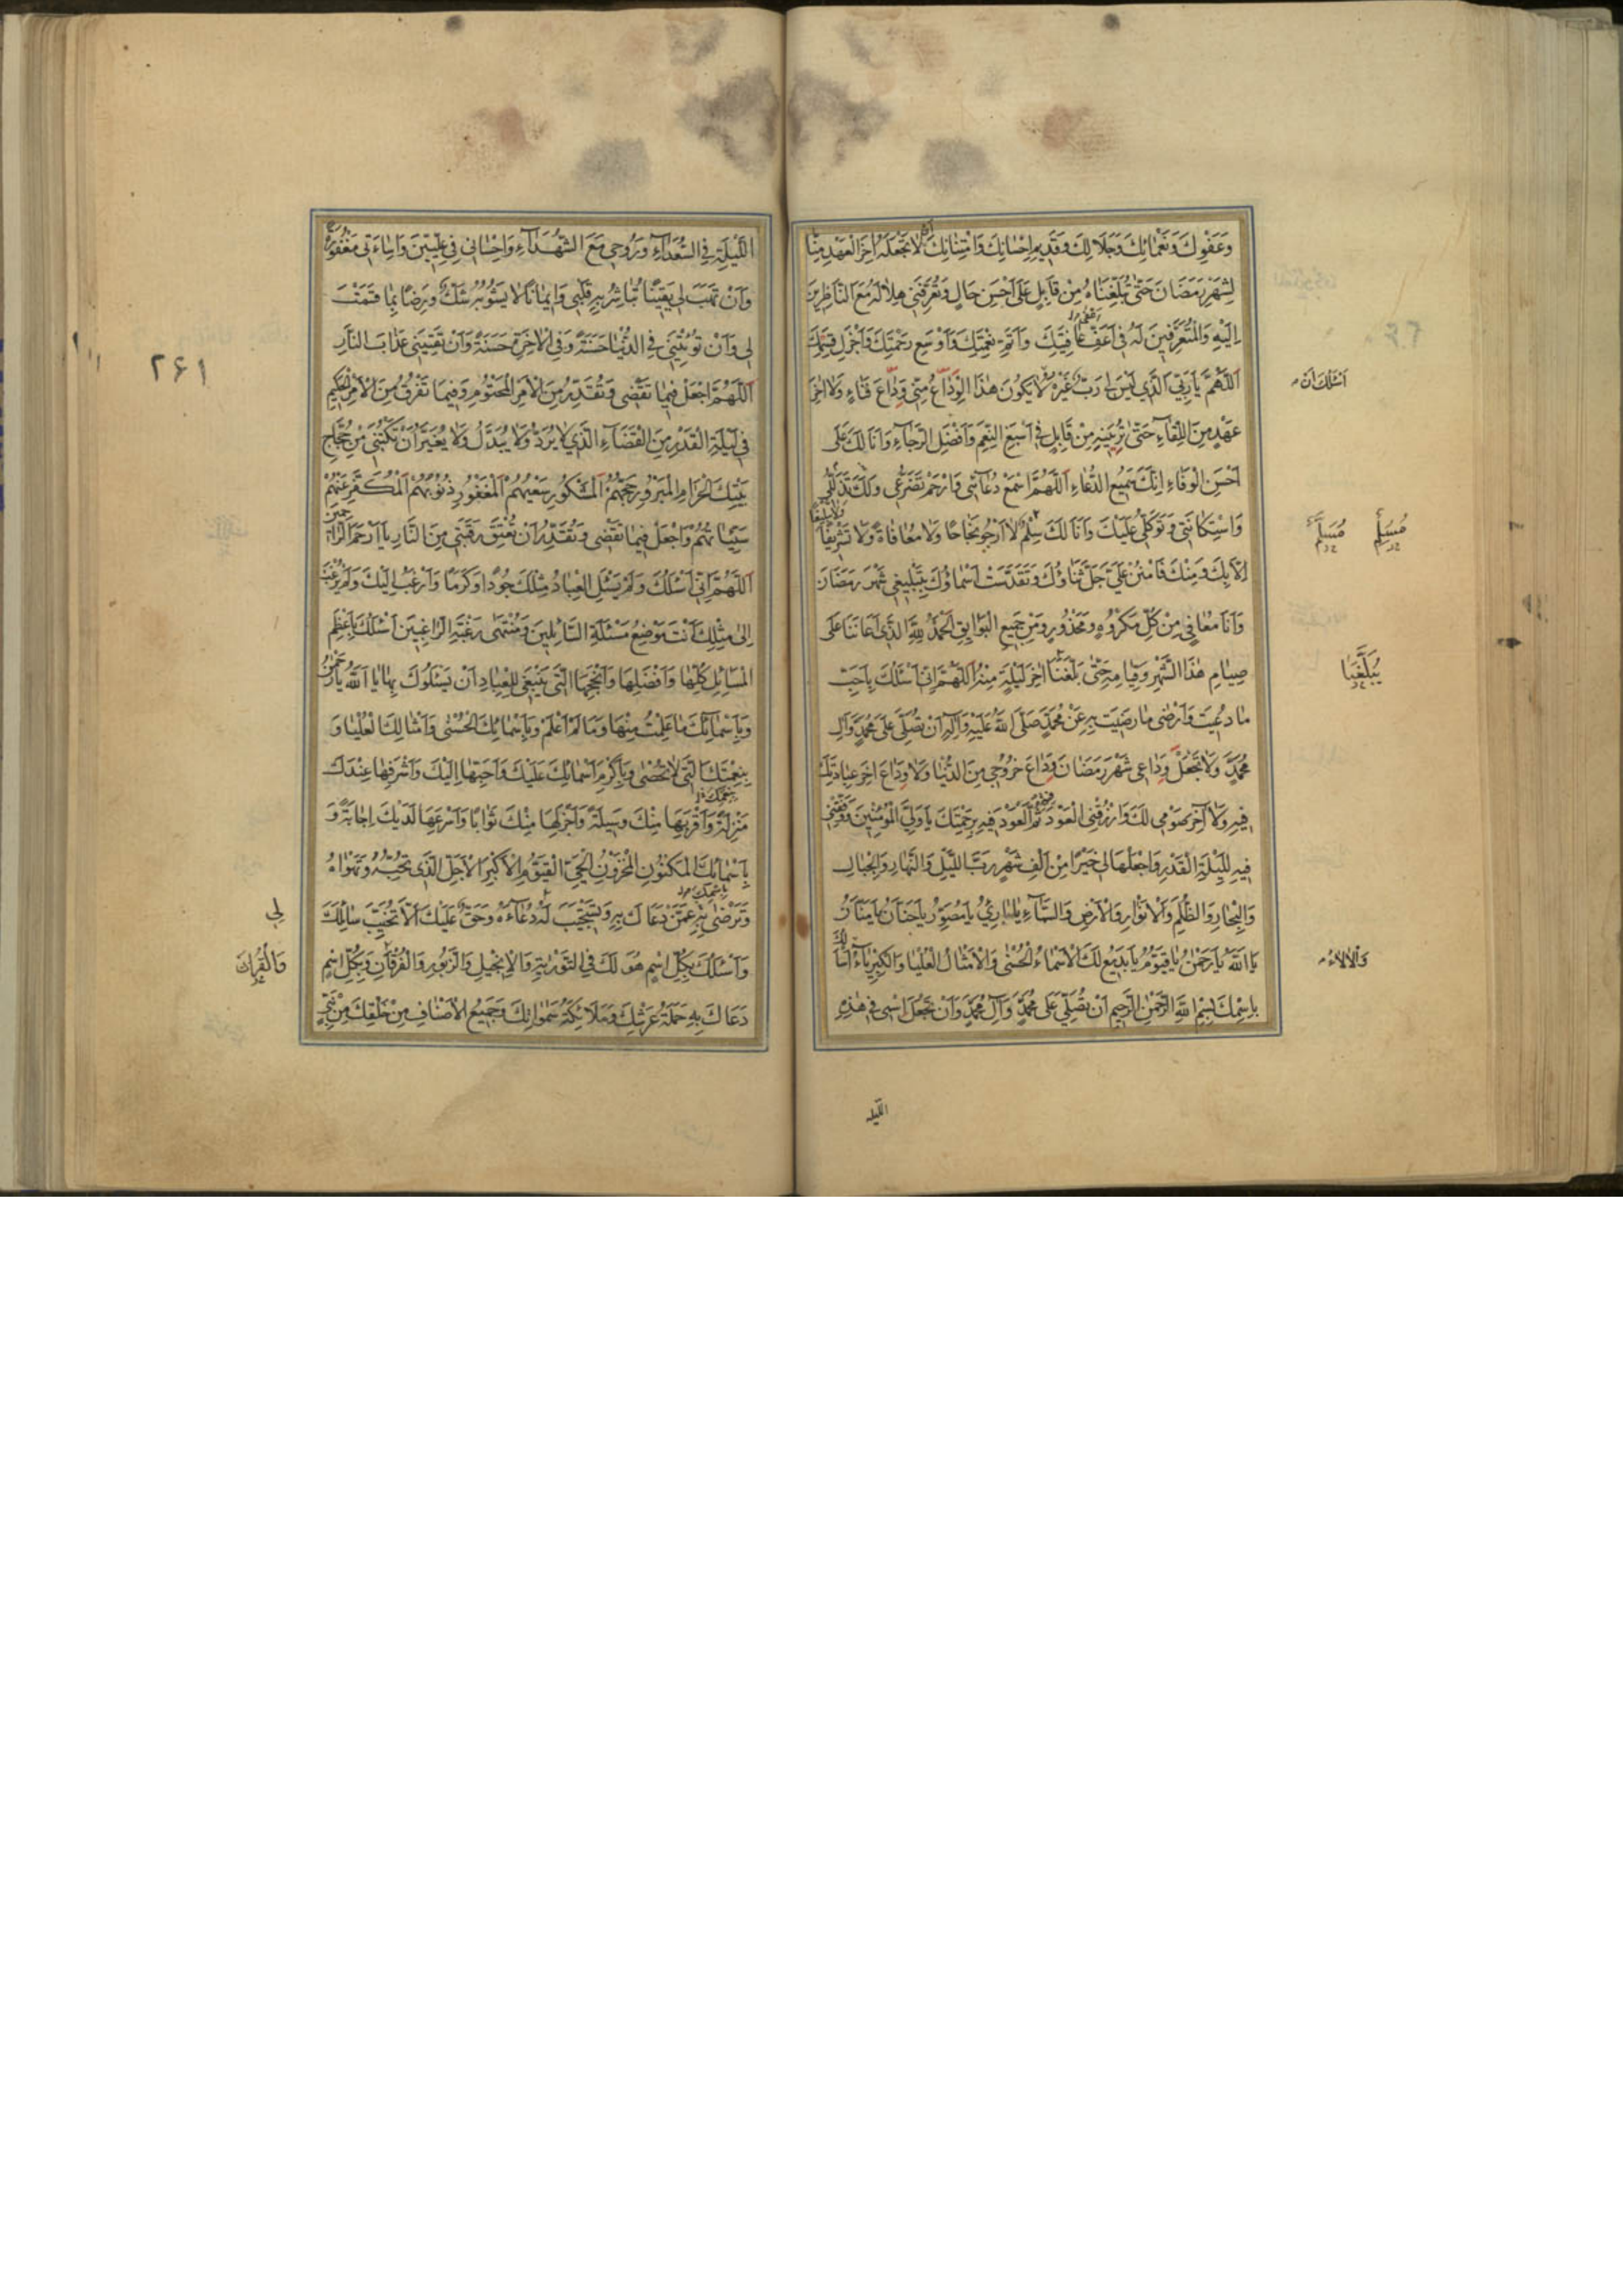 وَعَفْوِكَ وَنَعْمَائِكَ وَجَلَالِكَ وَقَدِيمِ اِحْسَانِكَ وَامْتِنَانِكَ اَنْ لَا تَجْعَلَهُ اٰخِرَ الْعَهْدِ مِنَّا
لِشَهْرِ رَمَضَانَ حَتّٰى تُبَلِّغَنَاهُ مِنْ قَابِلٍ عَلٰى اَحْسَنِ حَالٍ وَتُعَرِّفَنِي هِلَالَهُ مَعَ النَّاظِرِينَ
اِلَيْهِ وَالْمُتَعَرِّفِينَ لَهُ فِي اَعْفٰى عَافِيَتِكَ وَاَتَمِّ نِعْمَتِكَ وَاَوْسَعِ رَحْمَتِكَ وَاَجْزَلِ قِسَمِكَ
اَللّٰهُمَّ يَا رَبِّيَ الَّذِي لَيْسَ لِي رَبٌّ غَيْرُهُ لَا يَكُونُ هٰذَا الْوَدَاعُ مِنِّي وَدَاعَ فَنَاءٍ وَلَا اٰخِرَ
اَسْئَلُكَ اَنْ
عَهْدٍ مِنَ اللِّقَاءِ حَتّٰى تُرِيَنِيهِ مِنْ قَابِلٍ فِي اَسْبَغِ النِّعَمِ وَاَفْضَلِ الرَّجَاءِ وَاَنَا لَكَ عَلٰى
اَحْسَنِ الْوَفَاءِ اِنَّكَ سَمِيعُ الدُّعَاءِ اَللّٰهُمَّ اسْمَعْ دُعَائِي وَارْحَمْ تَضَرُّعِي وَتَذَلُّلِي لَكَ
وَاسْتِكَانَتِي وَتَوَكُّلِي عَلَيْكَ وَاَنَا لَكَ سِلْمٌ لَا اَرْجُو نَجَاحًا وَلَا مُعَافَاةً وَلَا تَشْرِيفًا وَلَا تَبْلِيغًا
مُسَلِّمٌ
اِلَّا بِكَ وَمِنْكَ فَامْنُنْ عَلَيَّ جَلَّ ثَنَاؤُكَ وَتَقَدَّسَتْ اَسْمَاؤُكَ بِتَبْلِيغِي شَهْرَ رَمَضَانَ
وَاَنَا مُعَافًى مِنْ كُلِّ مَكْرُوهٍ وَمَحْذُورٍ وَمِنْ جَمِيعِ الْبَوَائِقِ اَلْحَمْدُ لِلّٰهِ الَّذِي اَعَانَنَا عَلٰى
صِيَامِ هٰذَا الشَّهْرِ وَقِيَامِهِ حَتّٰى بَلَّغَنَا اٰخِرَ لَيْلَةٍ مِنْهُ اَللّٰهُمَّ اِنِّي اَسْئَلُكَ بِاَحَبِّ
مَا دُعِيتَ وَاَرْضٰى مَا رَضِيتَ بِهِ عَنْ مُحَمَّدٍ صَلَّى اللّٰهُ عَلَيْهِ وَاٰلِهِ اَنْ تُصَلِّيَ عَلٰى مُحَمَّدٍ وَاٰلِ
مُحَمَّدٍ وَلَا تَجْعَلْ وَدَاعِي شَهْرَ رَمَضَانَ وَدَاعَ خُرُوجِي مِنَ الدُّنْيَا وَلَا وَدَاعَ اٰخِرِ عِبَادَتِكَ
فِيهِ وَلَا اٰخِرَ صَوْمِي لَكَ وَارْزُقْنِي الْعَوْدَ ثُمَّ الْعَوْدَ فِيهِ بِرَحْمَتِكَ يَا وَلِيَّ الْمُؤْمِنِينَ وَوَفِّقْنِي
فِيهِ لِلَيْلَةِ الْقَدْرِ وَاجْعَلْهَا لِي خَيْرًا مِنْ اَلْفِ شَهْرٍ رَبَّ اللَّيْلِ وَالنَّهَارِ وَالْجِبَالِ
وَالْبِحَارِ وَالظُّلَمِ وَالْاَنْوَارِ وَالْاَرْضِ وَالسَّمَاءِ يَا بَارِئُ يَا مُصَوِّرُ يَا حَنَّانُ يَا مَنَّانُ
يَا اَللّٰهُ يَا رَحْمٰنُ يَا قَيُّومُ يَا بَدِيعُ لَكَ الْاَسْمَاءُ الْحُسْنٰى وَالْاَمْثَالُ الْعُلْيَا وَالْكِبْرِيَاءُ اَسْاَلُكَ
وَالْاٰلَاءُ
بِاسْمِكَ بِسْمِ اللّٰهِ الرَّحْمٰنِ الرَّحِيمِ اَنْ تُصَلِّيَ عَلٰى مُحَمَّدٍ وَاٰلِ مُحَمَّدٍ وَاَنْ تَجْعَلَ اسْمِي فِي هٰذِهِ
اللّيله
اللَّيْلَةِ فِي السُّعَدَاءِ وَرُوحِي مَعَ الشُّهَدَاءِ وَاِحْسَانِي فِي عِلِّيِّينَ وَاِسَاءَتِي مَغْفُورَةً
وَاَنْ تَهَبَ لِي يَقِينًا تُبَاشِرُ بِهِ قَلْبِي وَاِيمَانًا لَا يَشُوبُهُ شَكٌّ وَرِضًا بِمَا قَسَمْتَ
لِي وَاَنْ تُؤْتِيَنِي فِي الدُّنْيَا حَسَنَةً وَفِي الْاٰخِرَةِ حَسَنَةً وَاَنْ تَقِيَنِي عَذَابَ النَّارِ
۲۶۱
اَللّٰهُمَّ اجْعَلْ فِيمَا تَقْضِي وَتُقَدِّرُ مِنَ الْاَمْرِ الْمَحْتُومِ وَفِيمَا تَفْرُقُ مِنَ الْاَمْرِ الْحَكِيمِ
فِي لَيْلَةِ الْقَدْرِ مِنَ الْقَضَاءِ الَّذِي لَا يُرَدُّ وَلَا يُبَدَّلُ وَلَا يُغَيَّرُ اَنْ تَكْتُبَنِي مِنْ حُجَّاجِ
بَيْتِكَ الْحَرَامِ الْمَبْرُورِ حَجُّهُمُ الْمَشْكُورِ سَعْيُهُمُ الْمَغْفُورِ ذُنُوبُهُمُ الْمُكَفَّرِ عَنْهُمْ
سَيِّئَاتُهُمْ وَاجْعَلْ فِيمَا تَقْضِي وَتُقَدِّرُ اَنْ تُعْتِقَ رَقَبَتِي مِنَ النَّارِ يَا اَرْحَمَ الرَّاحِمِينَ
اَللّٰهُمَّ اِنِّي اَسْئَلُكَ وَلَمْ يَسْئَلِ الْعِبَادُ مِثْلَكَ جُودًا وَكَرَمًا وَاَرْغَبُ اِلَيْكَ وَلَمْ يُرْغَبْ
اِلٰى مِثْلِكَ اَنْتَ مَوْضِعُ مَسْئَلَةِ السَّائِلِينَ وَمُنْتَهٰى رَغْبَةِ الرَّاغِبِينَ اَسْئَلُكَ بِاَعْظَمِ
الْمَسَائِلِ كُلِّهَا وَاَفْضَلِهَا وَاَنْجَحِهَا الَّتِي يَنْبَغِي لِلْعِبَادِ اَنْ يَسْئَلُوكَ بِهَا يَا اَللّٰهُ يَا رَحْمٰنُ
وَبِاَسْمَائِكَ مَا عَلِمْتُ مِنْهَا وَمَا لَمْ اَعْلَمْ وَبِاَسْمَائِكَ الْحُسْنٰى وَاَمْثَالِكَ الْعُلْيَا وَ
بِنِعْمَتِكَ الَّتِي لَا تُحْصٰى وَبِاَكْرَمِ اَسْمَائِكَ عَلَيْكَ وَاَحَبِّهَا اِلَيْكَ وَاَشْرَفِهَا عِنْدَكَ
مَنْزِلَةً وَاَقْرَبِهَا مِنْكَ وَسِيلَةً وَاَجْزَلِهَا مِنْكَ ثَوَابًا وَاَسْرَعِهَا لَدَيْكَ اِجَابَةً وَ
بِاَسْمَائِكَ الْمَكْنُونِ الْمَخْزُونِ الْحَيِّ الْقَيُّومِ الْاَكْبَرِ الْاَجَلِّ الَّذِي تُحِبُّهُ وَتَهْوَاهُ
وَتَرْضٰى بِهِ عَمَّنْ دَعَاكَ بِهِ وَتَسْتَجِيبُ لَهُ دُعَاءَهُ وَحَقٌّ عَلَيْكَ اَلَّا تُخَيِّبَ سَائِلَكَ
لِي
وَاَسْئَلُكَ بِكُلِّ اسْمٍ هُوَ لَكَ فِي التَّوْرٰيةِ وَالْاِنْجِيلِ وَالزَّبُورِ وَالْفُرْقَانِ وَبِكُلِّ اسْمٍ
وَالْقُرْاٰنِ
دَعَاكَ بِهِ حَمَلَةُ عَرْشِكَ وَمَلَائِكَةُ سَمٰوَاتِكَ وَجَمِيعُ الْاَصْنَافِ مِنْ خَلْقِكَ مِنْ نَبِيٍّ